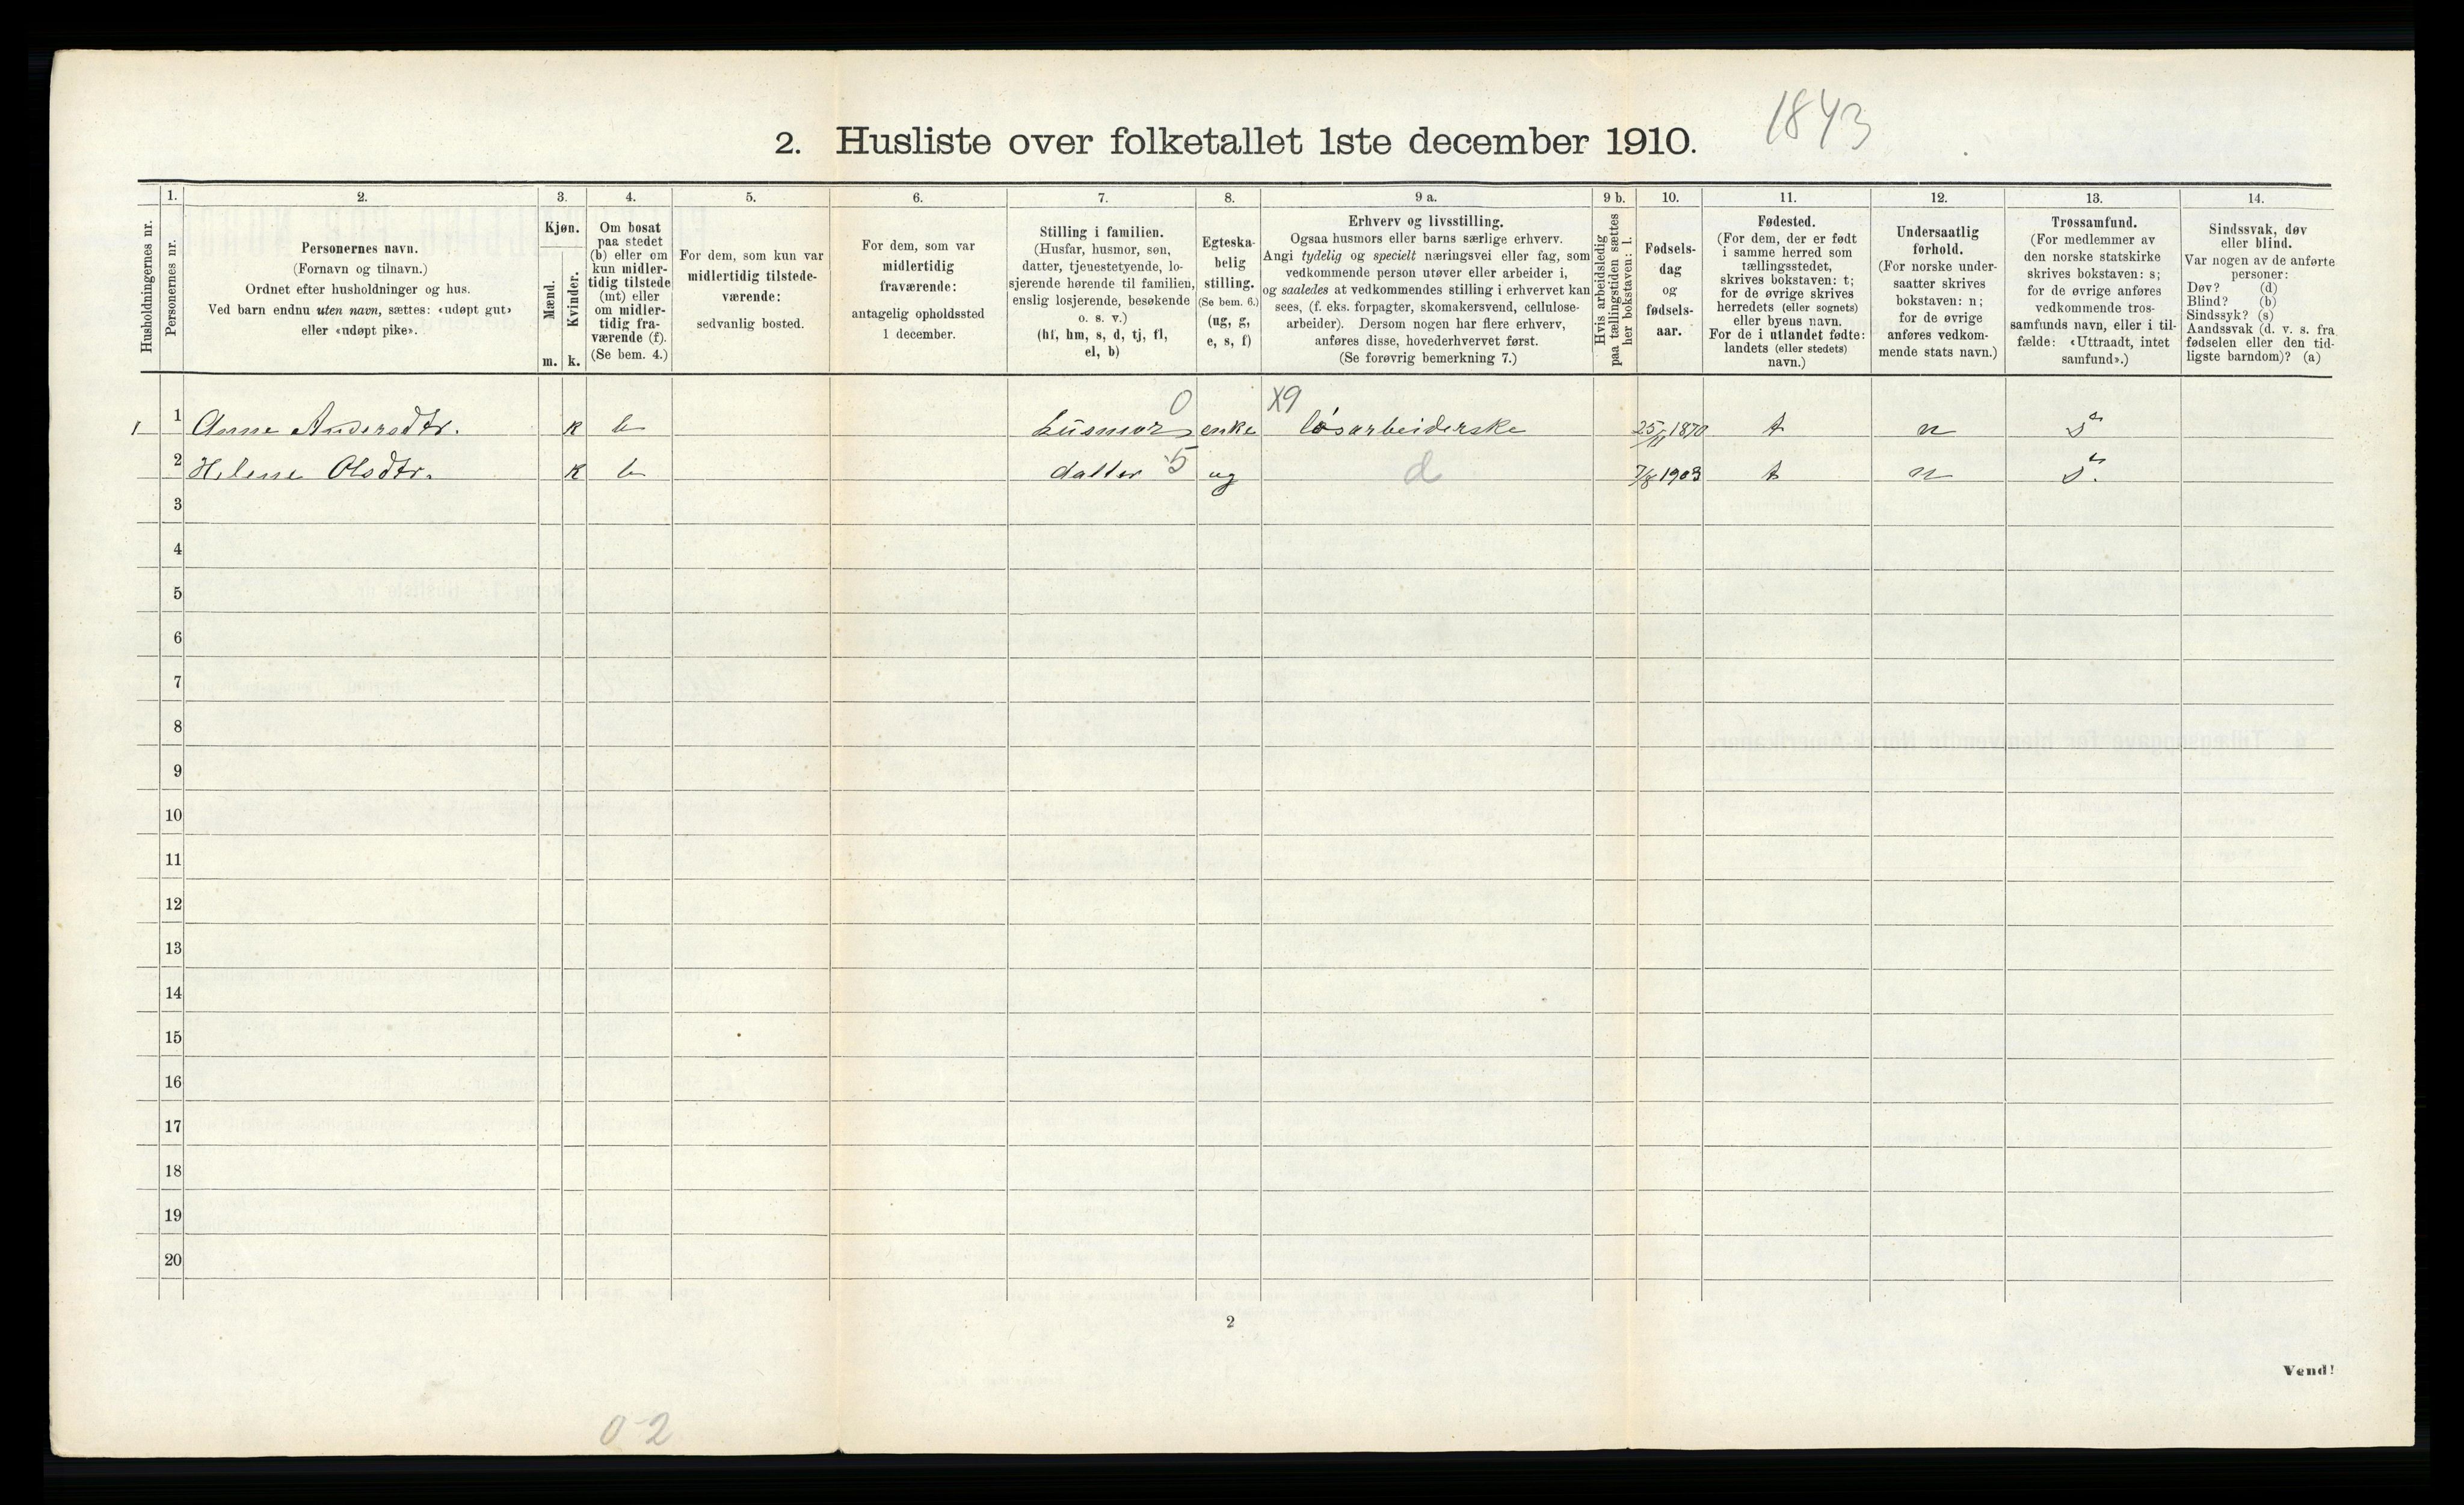 1843
2. Husliste over folketallet 1ste december 1910.
Husholdningernes nr.
1.
Personernes nr.
2.
Personernes navn.
(Fornavn og tilnavn.)
Ordnet efter husholdninger og hus.
Ved barn endnu uten navn, sættes: «udøpt gut»
eller «udøpt pike».
3.
Kjøn.
Mænd.
m.
Kvinder.
k.
4.
Om bosat
paa stedet
(b) eller om
kun midler-
tidig tilstede
(mt) eller
om midler-
tidig fra-
værende (f).
(Se bem. 4.)
5.
For dem, som kun var
midlertidig tilstede-
værende:
sedvanlig bosted.
6.
For dem, som var
midlertidig
fraværende:
antagelig opholdssted
1 december.
7.
Stilling i familien.
(Husfar, husmor, søn,
datter, tjenestetyende, lo-
sjerende hørende til familien,
enslig losjerende, besøkende
o. s. v.)
(hf, hm, s, d, tj, fl,
el, b)
8.
Egteska-
belig
stilling.
(Se bem. 6.)
(ug, g,
e, s, f)
9 a.
Erhverv og livsstilling.
Ogsaa husmors eller barns særlige erhverv.
Angi tydelig og specielt næringsvei eller fag, som
vedkommende person utøver eller arbeider i,
og saaledes at vedkommendes stilling i erhvervet kan
sees, (f. eks. forpagter, skomakersvend, cellulose-
arbeider). Dersom nogen har flere erhverv,
anføres disse, hovederhvervet først.
(Se forøvrig bemerkning 7.)
9 b.
Hvis arbeidsledig
paa tællingstiden sættes
her bokstaven: l.
10.
Fødsels-
dag
og
fødsels-
aar.
11.
Fødested.
(For dem, der er født
i samme herred som
tællingsstedet,
skrives bokstaven: t;
for de øvrige skrives
herredets (eller sognets)
eller byens navn.
For de i utlandet fødte:
landets (eller stedets)
navn.)
12.
Undersaatlig
forhold.
(For norske under-
saatter skrives
bokstaven: n;
for de øvrige
anføres vedkom-
mende stats navn.)
13.
Trossamfund.
(For medlemmer av
den norske statskirke
skrives bokstaven: s;
for de øvrige anføres
vedkommende tros-
samfunds navn, eller i til-
fælde: «Uttraadt, intet
samfund».)
14.
Sindssvak, døv
eller blind.
Var nogen av de anførte
personer:
Døv? (d)
Blind? (b)
Sindssyk? (s)
Aandssvak (d. v. s. fra
fødselen eller den tid-
ligste barndom)? (a)
0 X9
1 1 Anne Andersdtr. k b husmor enke løsarbeiderske 25/11 1870 t n s
2 Helene Olsdtr. k b datter 5 ug d 7/8 1903 t n s.
3
4
5
6
7
8
9
10
11
12
13
14
15
16
17
18
19
20
2
Vend!
0-2